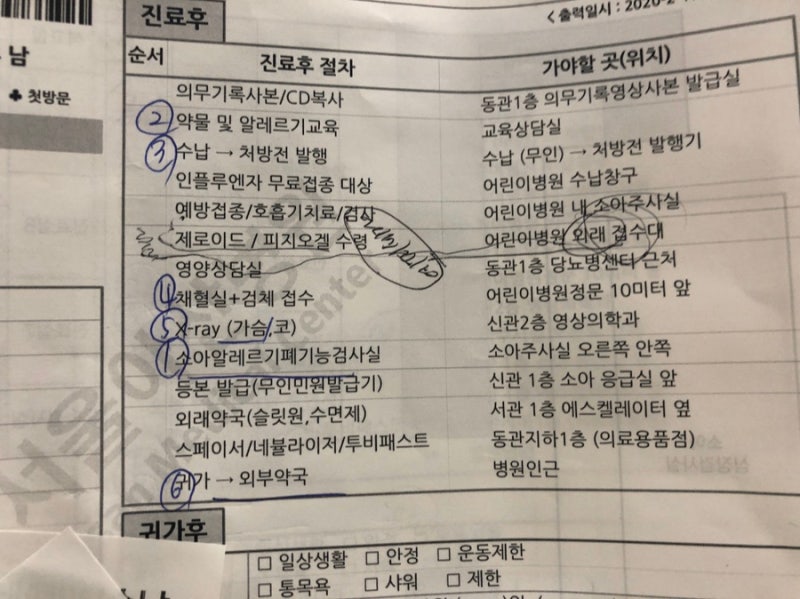 진료후
< 출력일시 : 2020-2
남
♣ 첫방문
순서 진료후 절차 가야할 곳(위치)
의무기록사본/CD복사 동관1층 의무기록영상사본 발급실
② 약물 및 알레르기교육 교육상담실
③ 수납 → 처방전 발행 수납 (무인) → 처방전 발행기
인플루엔자 무료접종 대상 어린이병원 수납창구
예방접종/호흡기치료/검사 어린이병원 내 소아주사실
제로이드 / 피지오겔 수령 어린이병원 외래 접수대
영양상담실 동관1층 당뇨병센터 근처
④ 채혈실+검체 접수 어린이병원정문 10미터 앞
⑤ X-ray (가슴,코) 신관2층 영상의학과
① 소아알레르기폐기능검사실 소아주사실 오른쪽 안쪽
등본 발급(무인민원발급기) 신관 1층 소아 응급실 앞
외래약국(슬릿원,수면제) 서관 1층 에스켈레이터 옆
스페이서/네뷸라이저/투비패스트 동관지하1층 (의료용품점)
⑥ 귀가 → 외부약국 병원인근
귀가후
□ 일상생활 □ 안정 □ 운동제한
□ 통목욕 □ 샤워 □ 제한